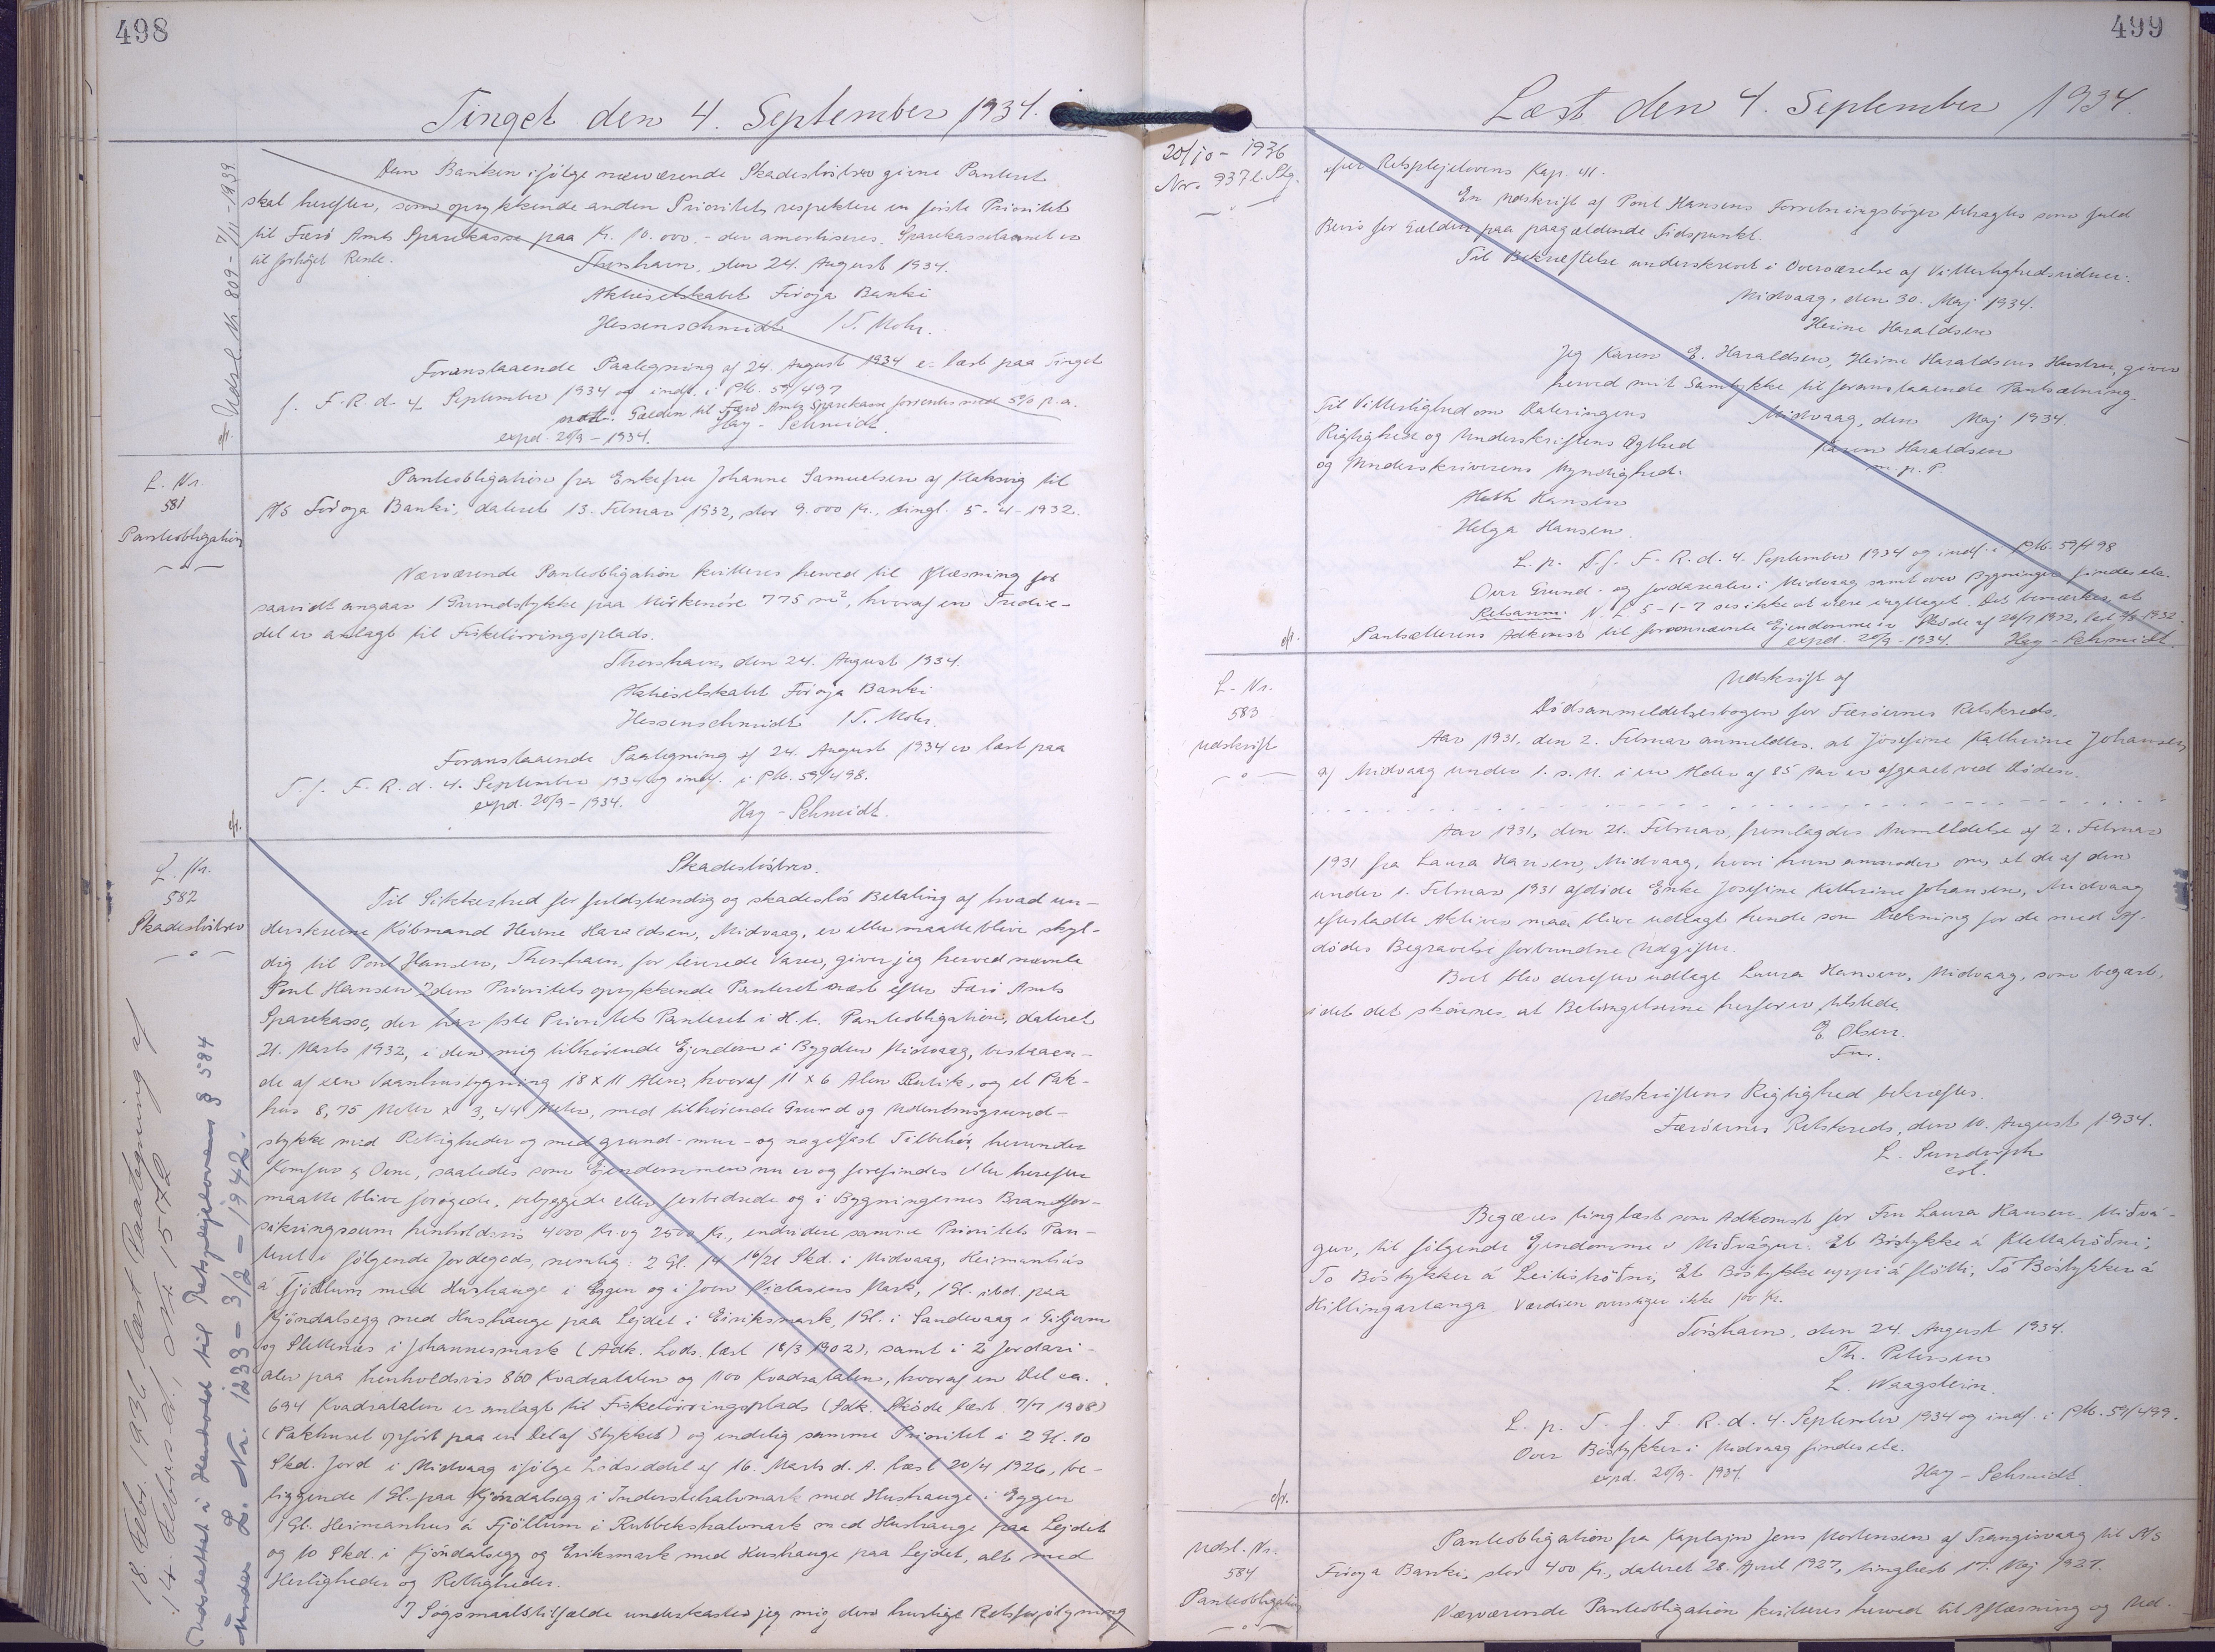 498
Tinget den 4. September 1934.
Udsl. L. Nr. 809 - 7/11 - 1939
Den Banken ifølge nærværende Skadesløsbrev givne Panteret
skal herefter, som oprykkende anden Prioritet, respektere en første Prioritet
til Færø Amts Sparekasse paa Kr. 10.000,- der amortiseres. Sparekasselaanet er
til forhøjet Rente.
Thorshavn, den 24. August 1934.
Aktieselskabet Føroya Banki
Hessenschmidt /T. Mohr.
Foranstaaende Paategning af 24. August 1934 er læst paa Tinget
f. F. R. d. 4. September 1934 og indf. i Ptb. 59/497
Gælden til Færø Amts Sparekasse forrentes med 5% p.a.
expd. 20/9 - 1934. Hay - Schmidt.
L. Nr.
581
Panteobligation
Panteobligation fra Enkefru Johanne Samuelsen af Klaksvig til
A/S Føroya Banki, dateret 13. Februar 1932, stor 9.000 Kr., tingl. 5-4-1932.
Nærværende Panteobligation kvitteres herved til Aflæsning for
saavidt angaar 1 Grundstykke paa Mørkenøre 775 m², hvoraf en Tredie-
del er anlagt til Fisketørringsplads.
Thorshavn, den 24. August 1934.
Aktieselskabet Føroya Banki
Hessenschmidt /T. Mohr.
Foranstaaende Paategning af 24. August 1934 er læst paa
T. f. F. R. d. 4. September 1934 og indf. i Ptb. 59/498.
expd. 20/9 - 1934. Hay - Schmidt.
L. Nr.
582
Skadesløsbrev
Skadesløsbrev.
Til Sikkerhed for fuldstændig og skadesløs Betaling af hvad un-
derskrevne Købmand Heine Haraldsen, Midvaag, er eller maatte blive skyl-
dig til Poul Hansen, Thorshavn, for leverede Varer, giver jeg herved nævnte
Poul Hansen 2den Prioritets oprykkende Panteret næst efter Færø Amts
Sparekasse, der har 1ste Prioritets Panteret i H. t. Panteobligation, dateret
21. Marts 1932, i den mig tilhørende Ejendom i Bygden Midvaag, bestaaen-
de af een Vaanhusbygning 18 x 11 Alen, hvoraf 11 x 6 Alen Butik, og et Pak-
hus 8,75 Meter x 3,44 Meter, med tilhørende Grund og Udenbunsgrund-
stykke med Rettigheder og med grund- mur- og nagelfast Tilbehør, herunder
Komfur & Ovne, saaledes som Ejendommen nu er og forefindes eller herefter
maatte blive forøgede, bebyggede eller forbedrede og i Bygningernes Brandfor-
sikringssum henholdsvis 4000 Kr. og 2500 Kr., endvidere samme Prioritets Pan-
teret i følgende Jordegods, nemlig: 2 Gl. 14 16/21 Skd. i Midvaag, Heimanhús
á Fjøllum med Hushauge i Eggen og i Joen Niclasens Mark, 1 Gl. ibd. paa
Kjøndalsegg med Hushauge paa Lejdet i Eiriksmark, 1 Gl. i Sandevaag i Giljarne
og Slettenes i Johannesmark (Adk. Lods. læst 18/3 1902), samt i 2 Jordare-
aler paa henholdsvis 860 Kvadratalen og 1100 Kvadratalen, hvoraf en Del ca.
694 Kvadratalen er anlagt til Fisketørringsplads (Adk. Skøde læst 7/7 1908)
(Pakhuset opført paa en Del af Stykket) og endelig samme Prioritet i 2 Gl. 10
Skd. Jord i Midvaag ifølge Lodseddel af 16. Marts d. A. læst 20/4 1926, be-
liggende 1 Gl. paa Kjøndalsegg i Inderstehalvmark med Hushauge i Eggen
1 Gl. Heimanhus á Fjøllum i Rubbekshalvmark med Hushauge paa Lejdet
og 10 Skd. i Kjøndalsegg og Eriksmark med Hushauge paa Lejdet, alt med
Herligheder og Rettigheder.
I Søgsmaalstilfælde underkaster jeg mig den hurtige Retsforfølgning
18. Febr. 1936 læst Paategning af
14. Februar d. A., Nr. 1572
Udslettet i Henhold til Retsplejelovens § 584
Under L. Nr. 1233 - 3/2 - 1942.
499
Læst den 4. September 1934.
20/10 - 1936
Nr. 937 l. Ptg.
efter Retsplejelovens Kap. 41.
En Udskrift af Poul Hansens Forretningsbøger betragtes som fuld
Bevis for Gælden paa paagældende Tidspunkt.
Til Bekræftelse underskrevet i Overværelse af Vitterlighedsvidner.
Midvaag, den 30. Maj 1934.
Heine Haraldsen
Jeg Karen E. Haraldsen, Heine Haraldsens Hustru, giver
herved mit Samtykke til foranstaaende Pantsætning.
Til Vitterlighed om Dateringens Midvaag, den Maj 1934.
Rigtighed og Underskriftens Ægthed Karen Haraldsen
og Underskriverens Myndighed. m. p. P.
Hansen
Helga Hansen.
L. p. T. f. F. R. d. 4. September 1934 og indf. i Ptb. 59/498
Over Grund- og Jordarealer i Midvaag samt over Bygninger findes ete.
Retsanm. N. L. 5-1-7 ses ikke at være iagttaget. Det bemærkes, at
Pantsætterens Adkomst til forannævnte Ejendomme er Skøde af 26/7 1932, læst 2/8 1932.
expd. 20/9 - 1934. Hay - Schmidt.
L. Nr.
583
Udskrift
Udskrift af
Dødsanmeldelsesbogen for Færøernes Retskreds.
Aar 1931, den 2. Februar anmeldtes, at Josefine Kathrine Johansen
af Midvaag under 1. s. M. i en Alder af 85 Aar er afgaaet ved Døden.
Aar 1931, den 21. Februar, fremlagdes Anmeldelse af 2. Februar
1931 fra Laura Hansen, Midvaag, hvori hun anmoder om, at de af den
under 1. Februar 1931 afdøde Enke Josefine Kathrine Johansen, Midvaag
efterladte Aktiver maa blive udlagt hende som Dækning for de med Af-
dødes Begravelse forbundne Udgifter.
Boet blev derefter udlagt Laura Hansen, Midvaag, som begært,
idet det skønnes, at Betingelserne herfor er tilstede.
E. Olsen.
Fm.
Udskriftens Rigtighed bekræftes.
Færøernes Retskreds, den 10. August 1934.
L.
cst.
Begæres tinglæst som Adkomst for Fru Laura Hansen, Miðvá-
gur, til følgende Ejendomme i Miðvágur: Et Bøstykke á Klettahøðni,
To Bøstykker á Leitishøðni, Et Bøstykke uppi á fløtti, To Bøstykker á
Hillingartanga. Værdien overstiger ikke 100 Kr.
Tórshavn, den 24. August 1934.
Th. Petersen
L. Waagstein.
L. p. T. f. F. R. d. 4. September 1934 og indf. i Ptb. 59/499.
Over Bøstykker i Midvaag findes ete.
expd. 20/9 - 1934. Hay - Schmidt
Udsl. Nr.
584
Panteobligation
Panteobligation fra Kaptajn Jens Mortensen af Trangisvaag til A/S
Føroya Banki, stor 400 Kr., dateret 28. April 1927, tinglæst 17. Maj 1927.
Nærværende Panteobligation kvitteres herved til Aflæsning og Ud-